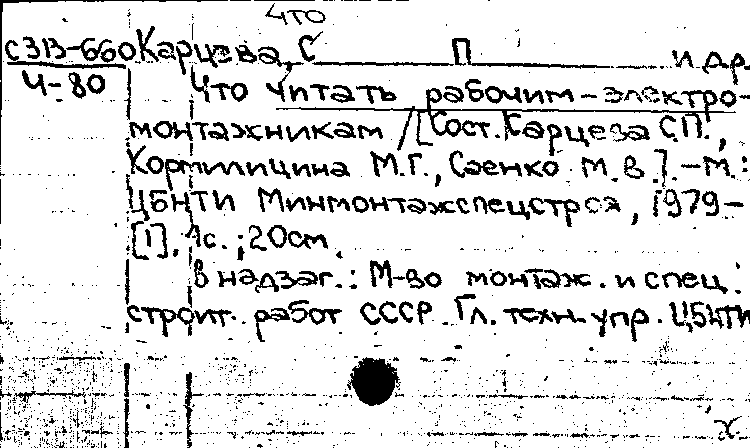 что
с313-660 Карцева, С П и др.
Ч-80 Что читать рабочим-электро-
монтажникам / [Сост. Карцева С.П.,
Кормилицина М.Г., Саенко М.В.]. - М.:
ЦБНТИ Минмонтажспецстроя, 1979-
[1], 1с.; 20см.
В надзаг.: М-во монтаж. и спец.
строит. работ СССР. Гл. техн. упр. ЦБНТИ